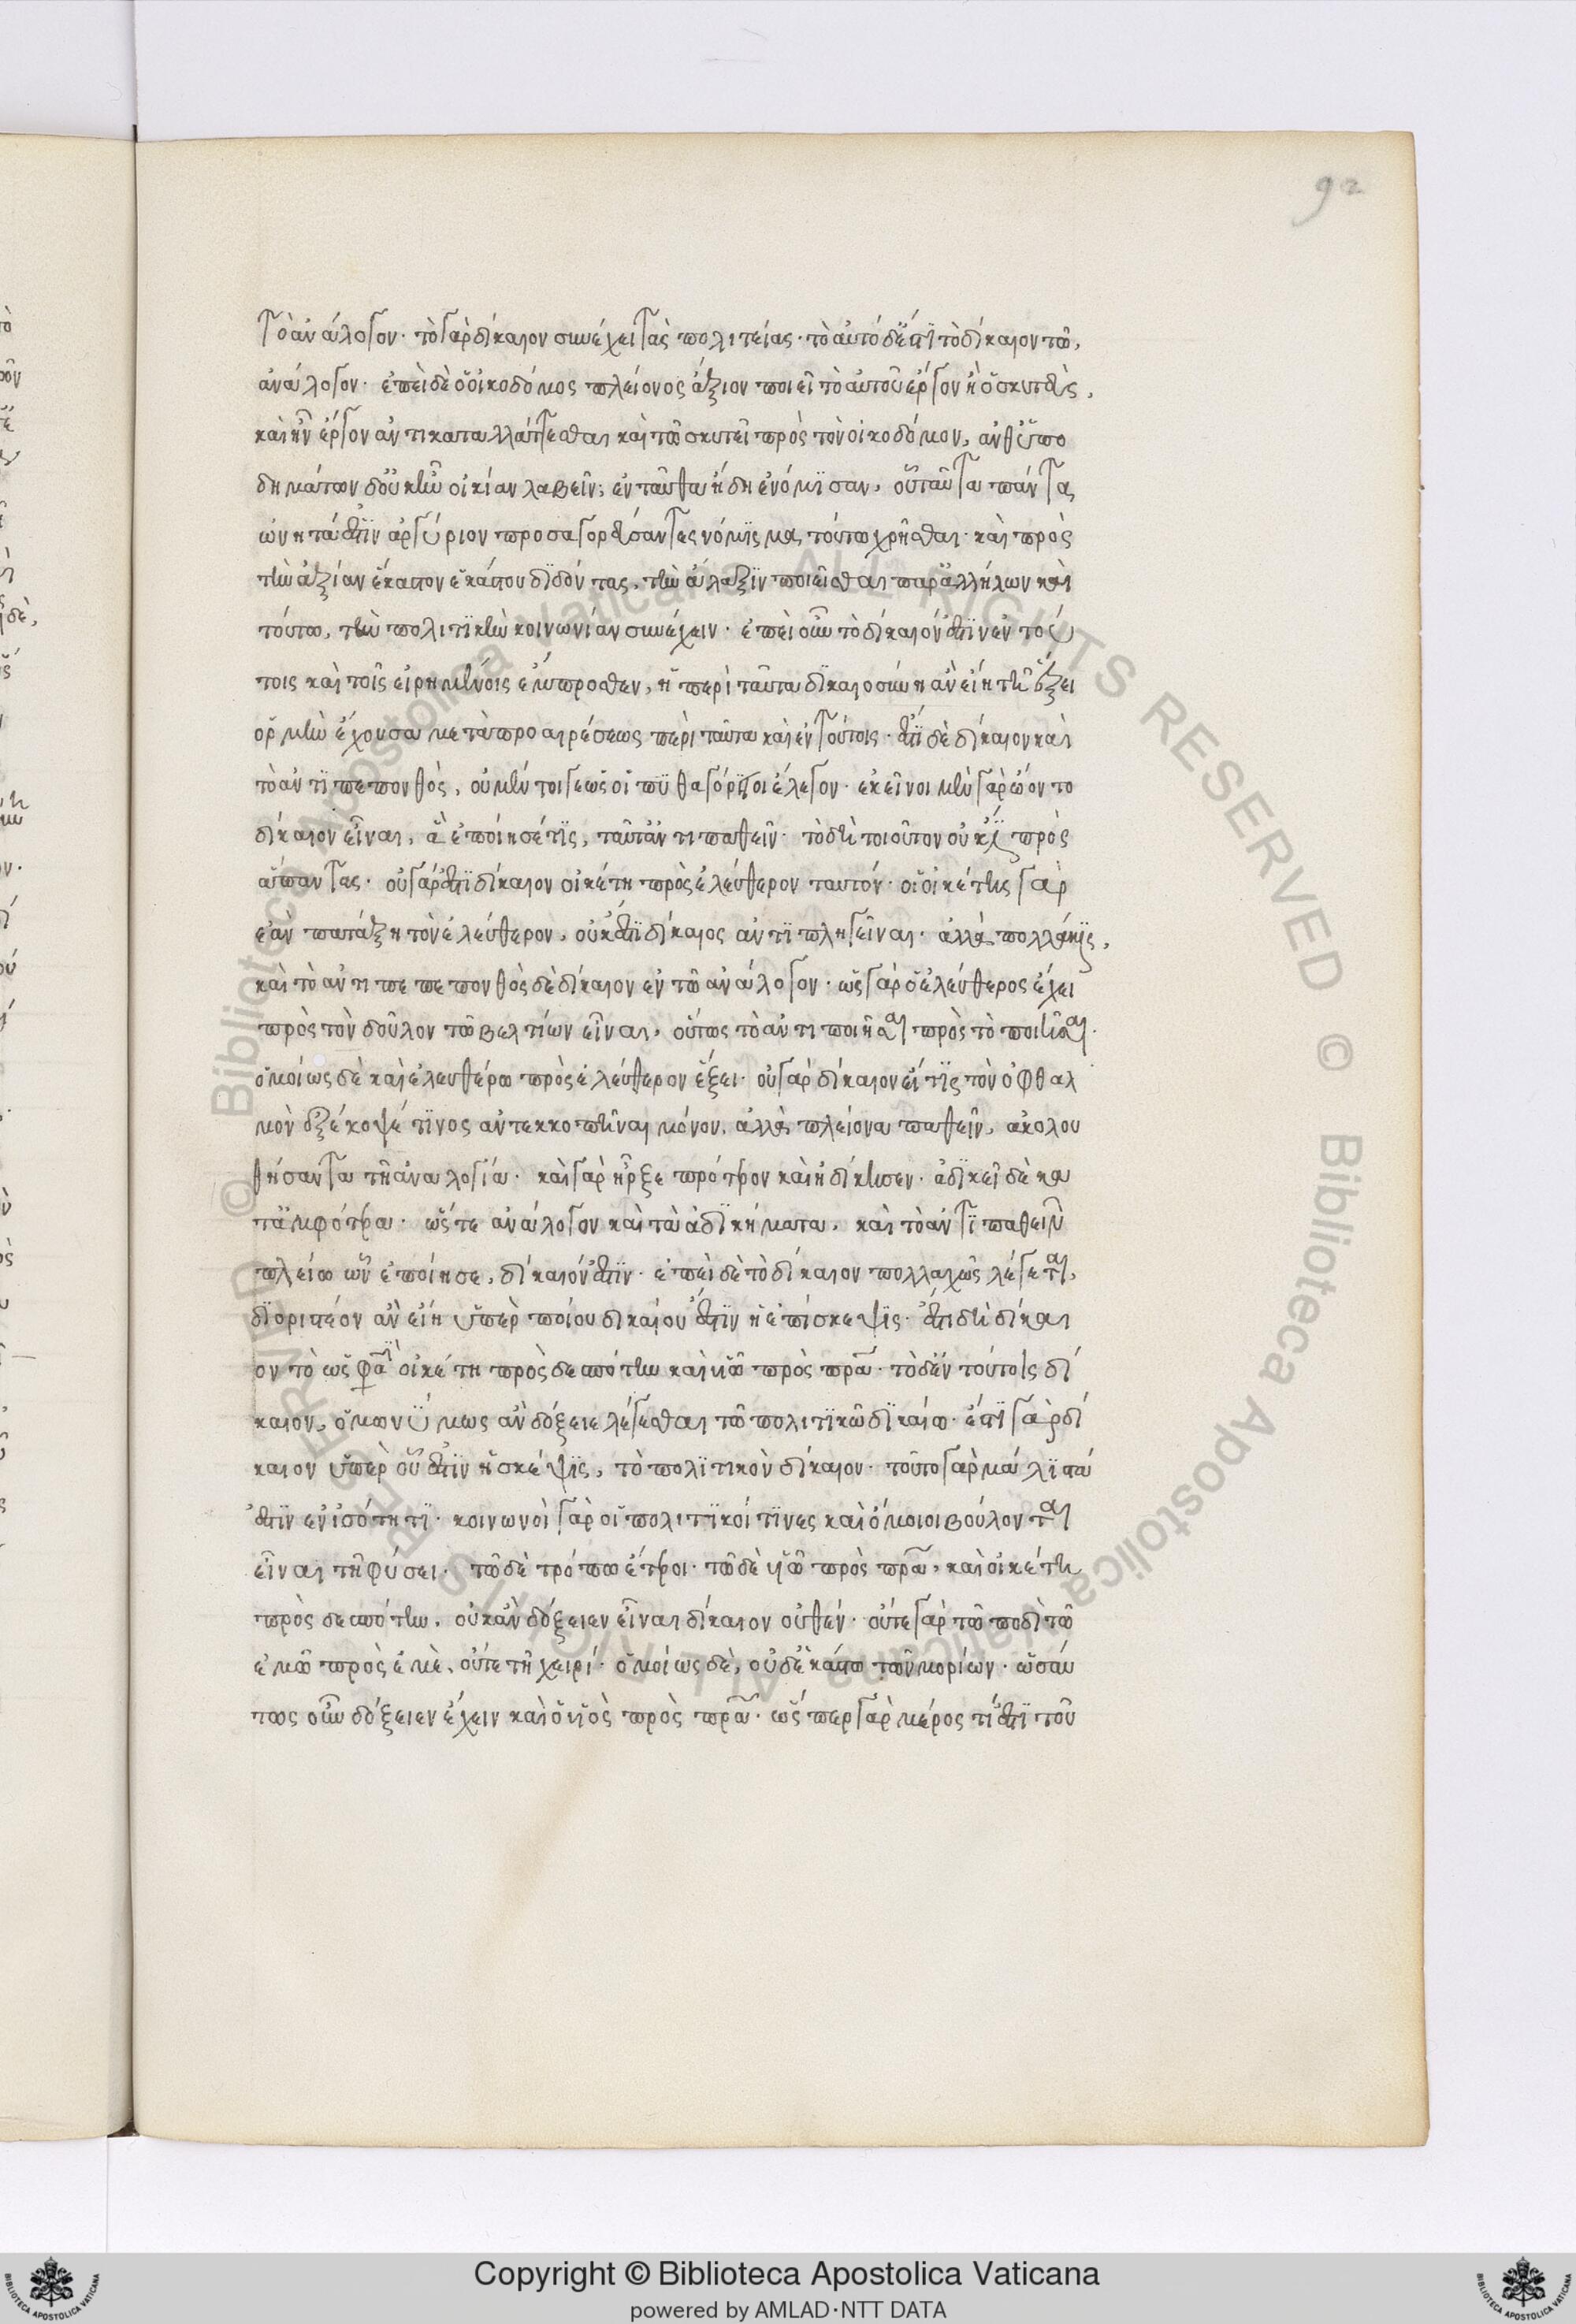 92
τὸ ἀνάλογον· τὸ γὰρ δίκαιον συνέχει τὰς πολιτείας· τὸ αὐτὸ δέ ἐστι τὸ δίκαιον τῶ,
ἀνάλογον· ἐπεὶ δὲ ὁ οἰκοδόμος πλείονος ἄξιον ποιεῖ τὸ αὐτοῦ ἔργον ἢ ὁ σκυτεὺς,
καὶ ἦν ἔργον ἀντικαταλλάττεσθαι καὶ τῶ σκυτεῖ πρὸς τὸν οἰκοδόμον, ἀνθ ὑπο
δημάτων δ οὐκ ἦν οἰκίαν λαβεῖν; ἐνταῦθα ἤδη ἐνόμισαν, οὗ ταῦτα πάντα
ὠνητά ἐστιν ἀργύριον προσαγορεύσαντες νόμισμα, τούτω χρῆσθαι· καὶ πρὸς
τὴν ἀξίαν ἕκαστον ἑκάστου διδόντας, τὴν ἄλαξιν ποιεῖσθαι παρ ἀλλήλων καὶ
τούτω, τὴν πολιτικὴν κοινωνίαν συνέχειν· ἐπεὶ οὖν τὸ δίκαιόν ἐστιν ἐν τού
τοις καὶ τοῖς εἰρημένοις ἔμπροσθεν, ἡ περὶ ταῦτα δικαιοσύνη ἂν εἴη τῆ ἕξει
ὁρμὴν ἔχουσα μετὰ προαιρέσεως περὶ ταῦτα καὶ ἐν τούτοις· ἔστι δὲ δίκαιον καὶ
τὸ ἀντιπεπονθὸς, οὐ μέντοι γε ὡς οἱ πυθαγόριοι ἔλεγον· ἐκεῖνοι μὲν γὰρ ὤοντο
δίκαιον εἶναι, ἃ ἐποίησέ τις, ταῦτ ἀντιπαθεῖν· τὸ δὴ τοιοῦτον οὐκ ἔστι πρὸς
ἅπαντας· οὐ γάρ ἐστι δίκαιον οἰκέτη πρὸς ἐλεύθερον ταυτόν· ὁ οἰκέτης γὰρ
ἐὰν πατάξη τὸν ἐλεύθερον, οὐκ ἔστι δίκαιος ἀντιπληγεῖναι· ἀλλὰ πολλάκις,
καὶ τὸ ἀντιπεπεπονθὸς δὲ δίκαιον ἐν τῶ ἀνάλογον· ὡς γὰρ ὁ ἐλεύθερος ἔχει
πρὸς τὸν δοῦλον τῶ βελτίων εἶναι, οὕτως τὸ ἀντιποιῆσαι πρὸς τὸ ποιῆσαι·
ὁμοίως δὲ καὶ ἐλευθέρω πρὸς ἐλεύθερον ἕξει· οὐ γὰρ δίκαιον εἴ τις τὸν ὀφθαλ
μὸν ἐξέκοψέ τινος ἀντεκκοπῆναι μόνον, ἀλλὰ πλείονα παθεῖν, ἀκολου
θήσαντα τῆ ἀναλογία· καὶ γὰρ ἦρξε πρότερον καὶ ἠδίκησεν· ἀδικεῖ δὲ κα
τ ἀμφότερα· ὥστε ἀνάλογον καὶ τὰ ἀδικήματα, καὶ τὸ ἀντιπαθεῖν
πλείω ὧν ἐποίησε, δίκαιόν ἐστιν· ἐπεὶ δὲ τὸ δίκαιον πολλαχῶς λέγεται,
διοριστέον ἂν εἴη ὑπὲρ ποίου δικαίου ἐστὶν ἡ ἐπίσκεψις· ἔστι δὴ δίκαι
ον τὸ ὥς φασὶ οἰκέτη πρὸς δεσπότην καὶ υἱῶ πρὸς πατέρα· τὸ δ ἐν τούτοις δί
καιον, ὁμωνύμως ἂν δόξειε λέγεσθαι τῶ πολιτικῶ δικαίω· ἔστι γὰρ δί
καιον ὑπὲρ οὗ ἐστὶν ἡ σκέψις, τὸ πολιτικὸν δίκαιον· τοῦτο γὰρ μάλιστά
ἐστιν ἐν ἰσότητι· κοινωνοὶ γὰρ οἱ πολιτικοί τινες καὶ ὅμοιοι βούλονται
εἶναι τῆ φύσει· τῶ δὲ τρόπω ἕτεροι· τῶ δὲ υἱῶ πρὸς πατέρα, καὶ οἰκέτη
πρὸς δεσπότην, οὐκ ἂν δόξειεν εἶναι δίκαιον οὐθέν· οὔτε γὰρ τῶ ποδὶ τῶ
ἐμῶ πρὸς ἐμὲ, οὔτε τῆ χειρί· ὁμοίως δὲ, οὐδ ἑκάστω τῶν μορίων· ὡσαύ
τως οὖν δόξειεν ἔχειν καὶ ὁ υἱὸς πρὸς πατέρα· ὥσπερ γὰρ μέρος τί ἐστι τοῦ
© Biblioteca Apostolica Vaticana ALL RIGHTS RESERVED
Copyright © Biblioteca Apostolica Vaticana
powered by AMLAD·NTT DATA